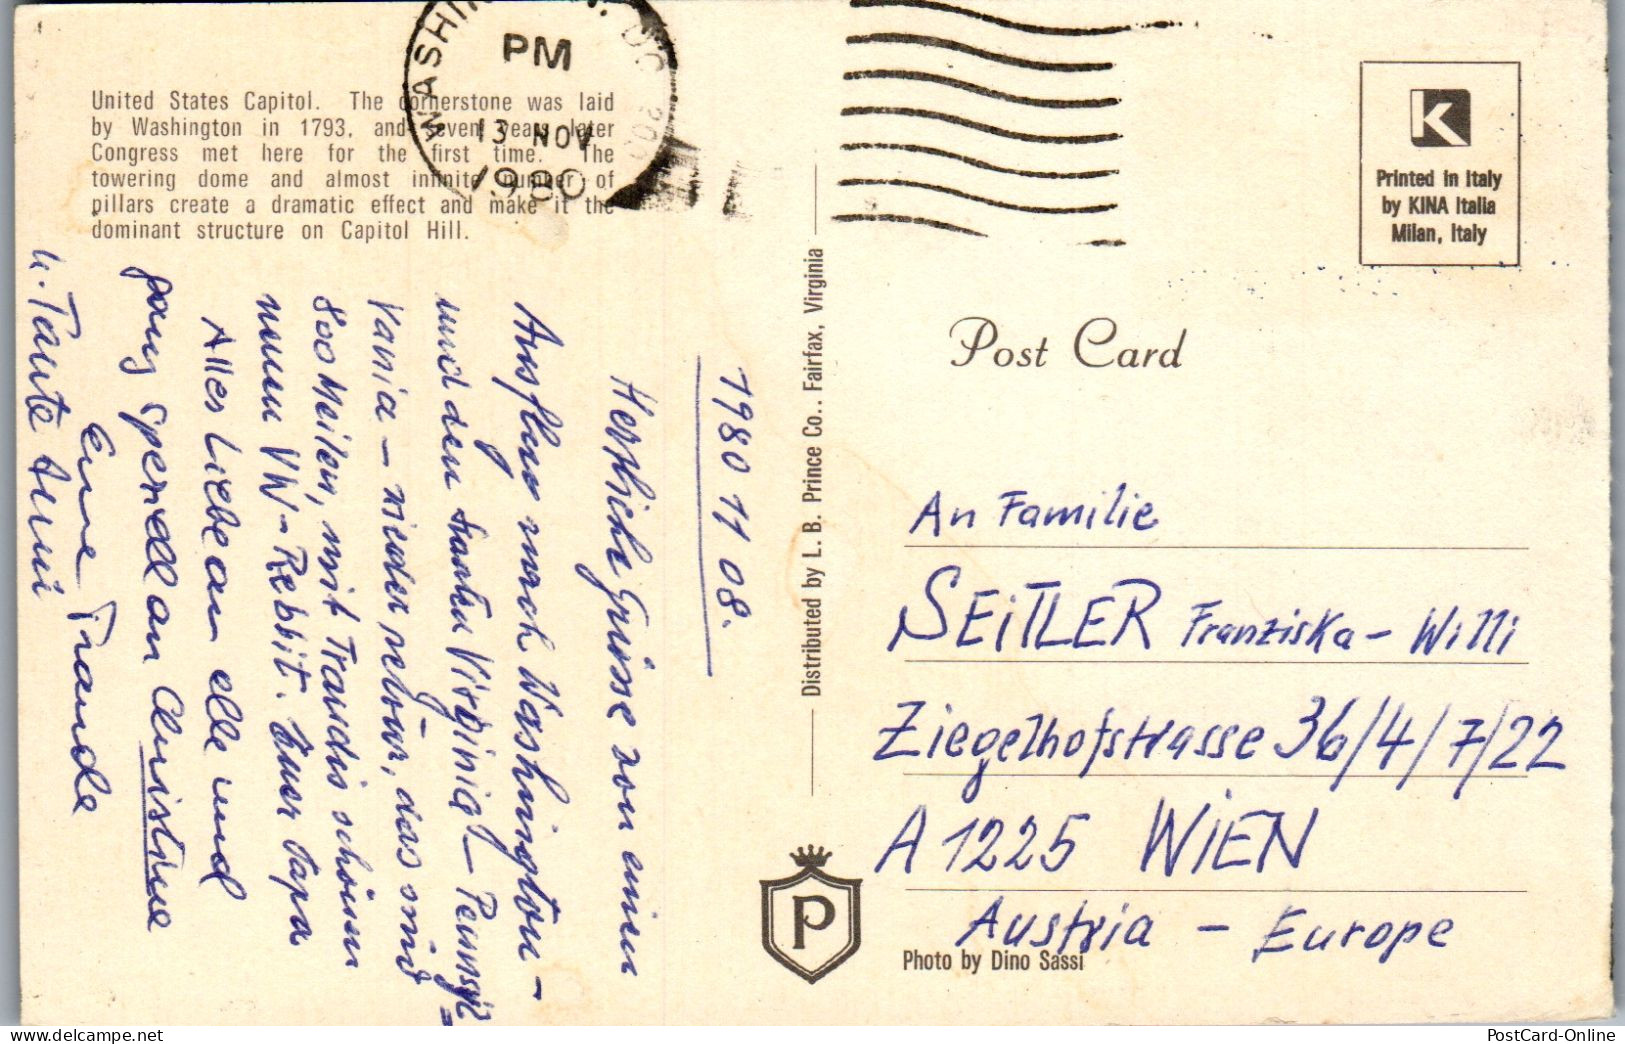 United States Capitol. The cornerstone was laid
by Washington in 1793, and seven years later
Congress met here for the first time. The
towering dome and almost infinite number of
pillars create a dramatic effect and make it the
dominant structure on Capitol Hill.
WASHIN DC
PM
13 NOV
1980
1980 11 08.
Herzliche Grüsse von einem
Ausflug nach Washington -
und den Staaten Virginia - Pennsyl=
vania - wieder retour, das sind
800 Meilen, mit Traudis schönen
neuen VW-Rebbit. Euer Papa
Alles Liebe an alle und
ganz speziell an Christine
Eure Traude
u. Tante Anni
Distributed by L. B. Prince Co., Fairfax, Virginia
P
K
Printed in Italy
by KINA Italia
Milan, Italy
Post Card
An Familie
SEITLER Franziska - Willi
Ziegelhofstrasse 36/4/7/22
A 1225 WIEN
Austria - Europe
Photo by Dino Sassi
www.delcampe.net
PostCard-Online